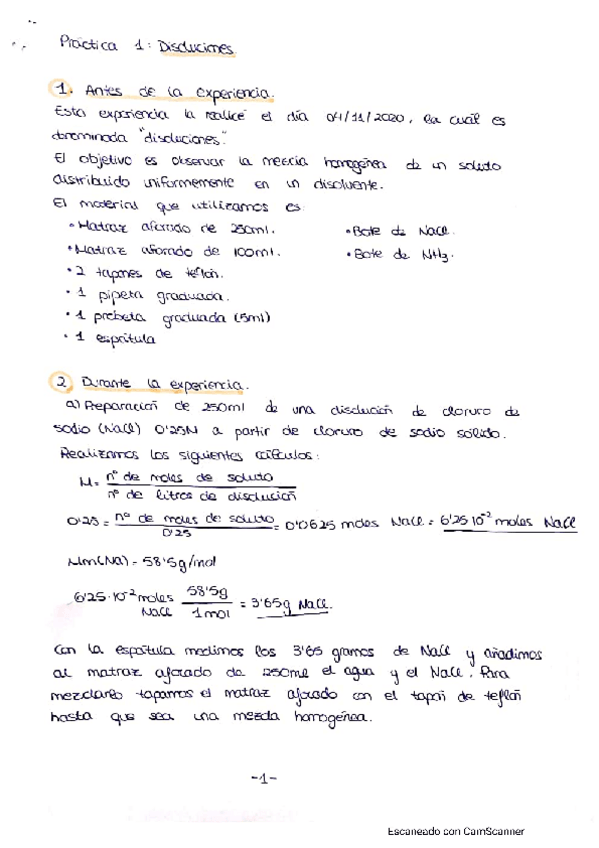 Práctica 1: Disoluciones
1. Antes de la experiencia.
Esta experiencia la realicé el día 04/11/2020, la cuál es
denominada "disoluciones".
El objetivo es observar la mezcla homogénea de un soluto
distribuido uniformemente en un disolvente.
El material que utilizamos es:
• Matraz aforado de 250ml.
• Matraz aforado de 100ml.
• 2 tapones de teflón.
• 1 pipeta graduada.
• 1 probeta graduada (5ml)
• 1 espátula
• Bote de NaCl.
• Bote de NH3.
2. Durante la experiencia.
a) Preparación de 250ml de una disolución de cloruro de
sodio (NaCl) 0'25N a partir de cloruro de sodio sólido.
Realizamos los siguientes cálculos:
M = nº de moles de soluto / nº de litros de disolución
0'25 = nº de moles de soluto / 0'25 = 0'0625 moles NaCl = 6'25·10⁻² moles NaCl
Mm(Na) = 58'5g/mol
6'25·10⁻² moles NaCl 58'5g / 1mol = 3'65g NaCl.
Con la espátula medimos los 3'65 gramos de NaCl y añadimos
al matraz aforado de 250ml el agua y el NaCl. Para
mezclarlo tapamos el matraz aforado con el tapón de teflón
hasta que sea una mezcla homogénea.
-1-
Escaneado con CamScanner